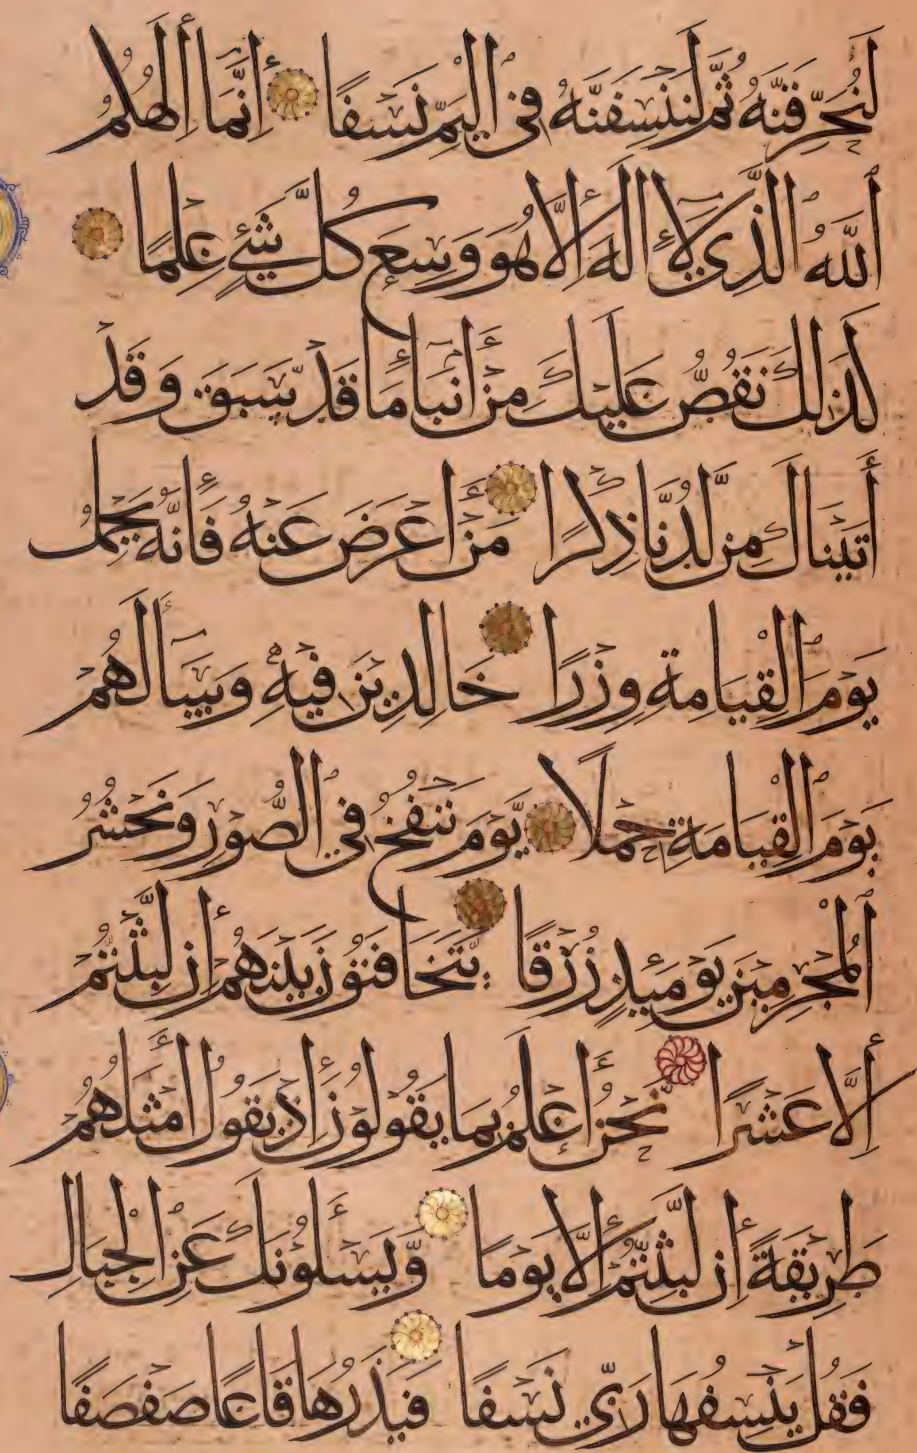 لَنُحَرِّقَنَّهُ ثُمَّ لَنَنْسِفَنَّهُ فِي الْيَمِّ نَسْفًا اِنَّمَا اِلٰهُكُمُ
اللَّهُ الَّذِي لَا اِلٰهَ اِلَّا هُوَ وَسِعَ كُلَّ شَيْءٍ عِلْمًا
كَذٰلِكَ نَقُصُّ عَلَيْكَ مِنْ اَنْبَاءِ مَا قَدْ سَبَقَ وَقَدْ
اٰتَيْنَاكَ مِنْ لَّدُنَّا ذِكْرًا مَنْ اَعْرَضَ عَنْهُ فَاِنَّهُ يَحْمِلُ
يَوْمَ الْقِيَامَةِ وِزْرًا خَالِدِينَ فِيهِ وَسَاءَ لَهُمْ
يَوْمَ الْقِيَامَةِ حِمْلًا يَّوْمَ نَنْفُخُ فِي الصُّورِ وَنَحْشُرُ
الْمُجْرِمِينَ يَوْمَئِذٍ زُرْقًا يَّتَخَافَتُونَ بَيْنَهُمْ اِنْ لَّبِثْتُمْ
اِلَّا عَشْرًا نَّحْنُ اَعْلَمُ بِمَا يَقُولُونَ اِذْ يَقُولُ اَمْثَلُهُمْ
طَرِيقَةً اِنْ لَّبِثْتُمْ اِلَّا يَوْمًا وَّيَسْـَٔلُونَكَ عَنِ الْجِبَالِ
فَقُلْ يَنْسِفُهَا رَبِّي نَسْفًا فَيَذَرُهَا قَاعًا صَفْصَفًا